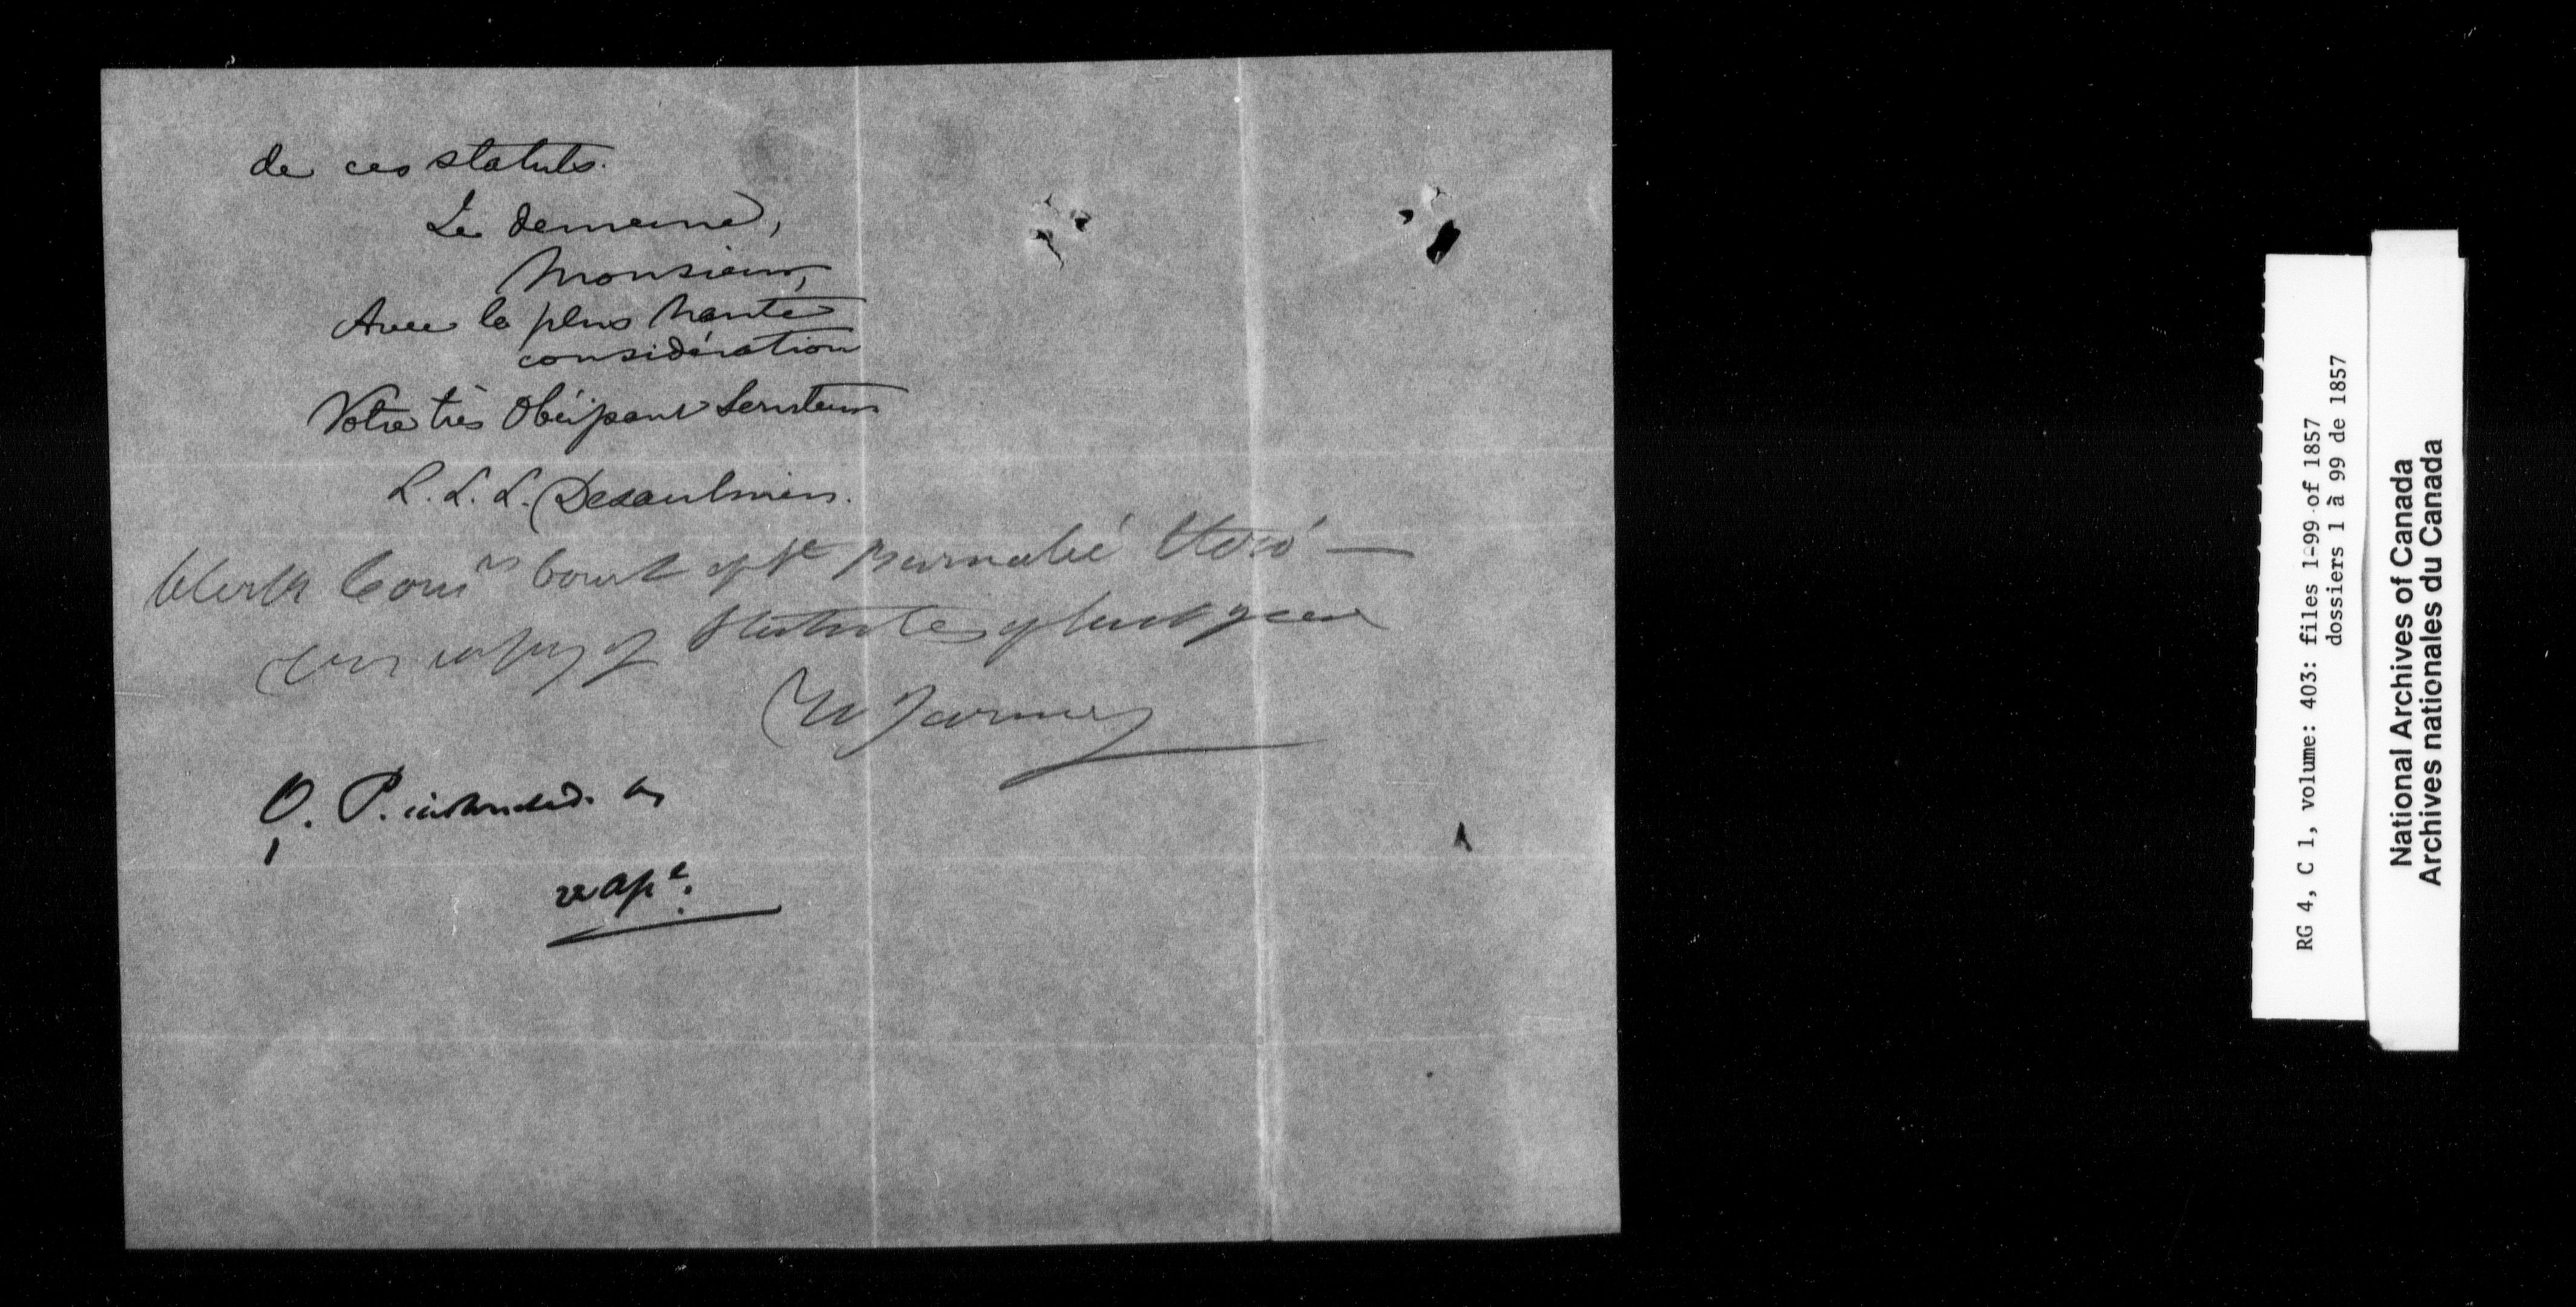 de ces statuts.
Je demeure,
Monsieur,
Avec la plus haute
considération
Votre très Obéissant Serviteur
L. L. L. Desaulniers.
Clerk Comrs Court of St Barnabé
copy of Statutes of last year
O. P. instructed. to
RG 4, C 1, volume: 403: files 1-99 of 1857
dossiers 1 à 99 de 1857
National Archives of Canada
Archives nationales du Canada